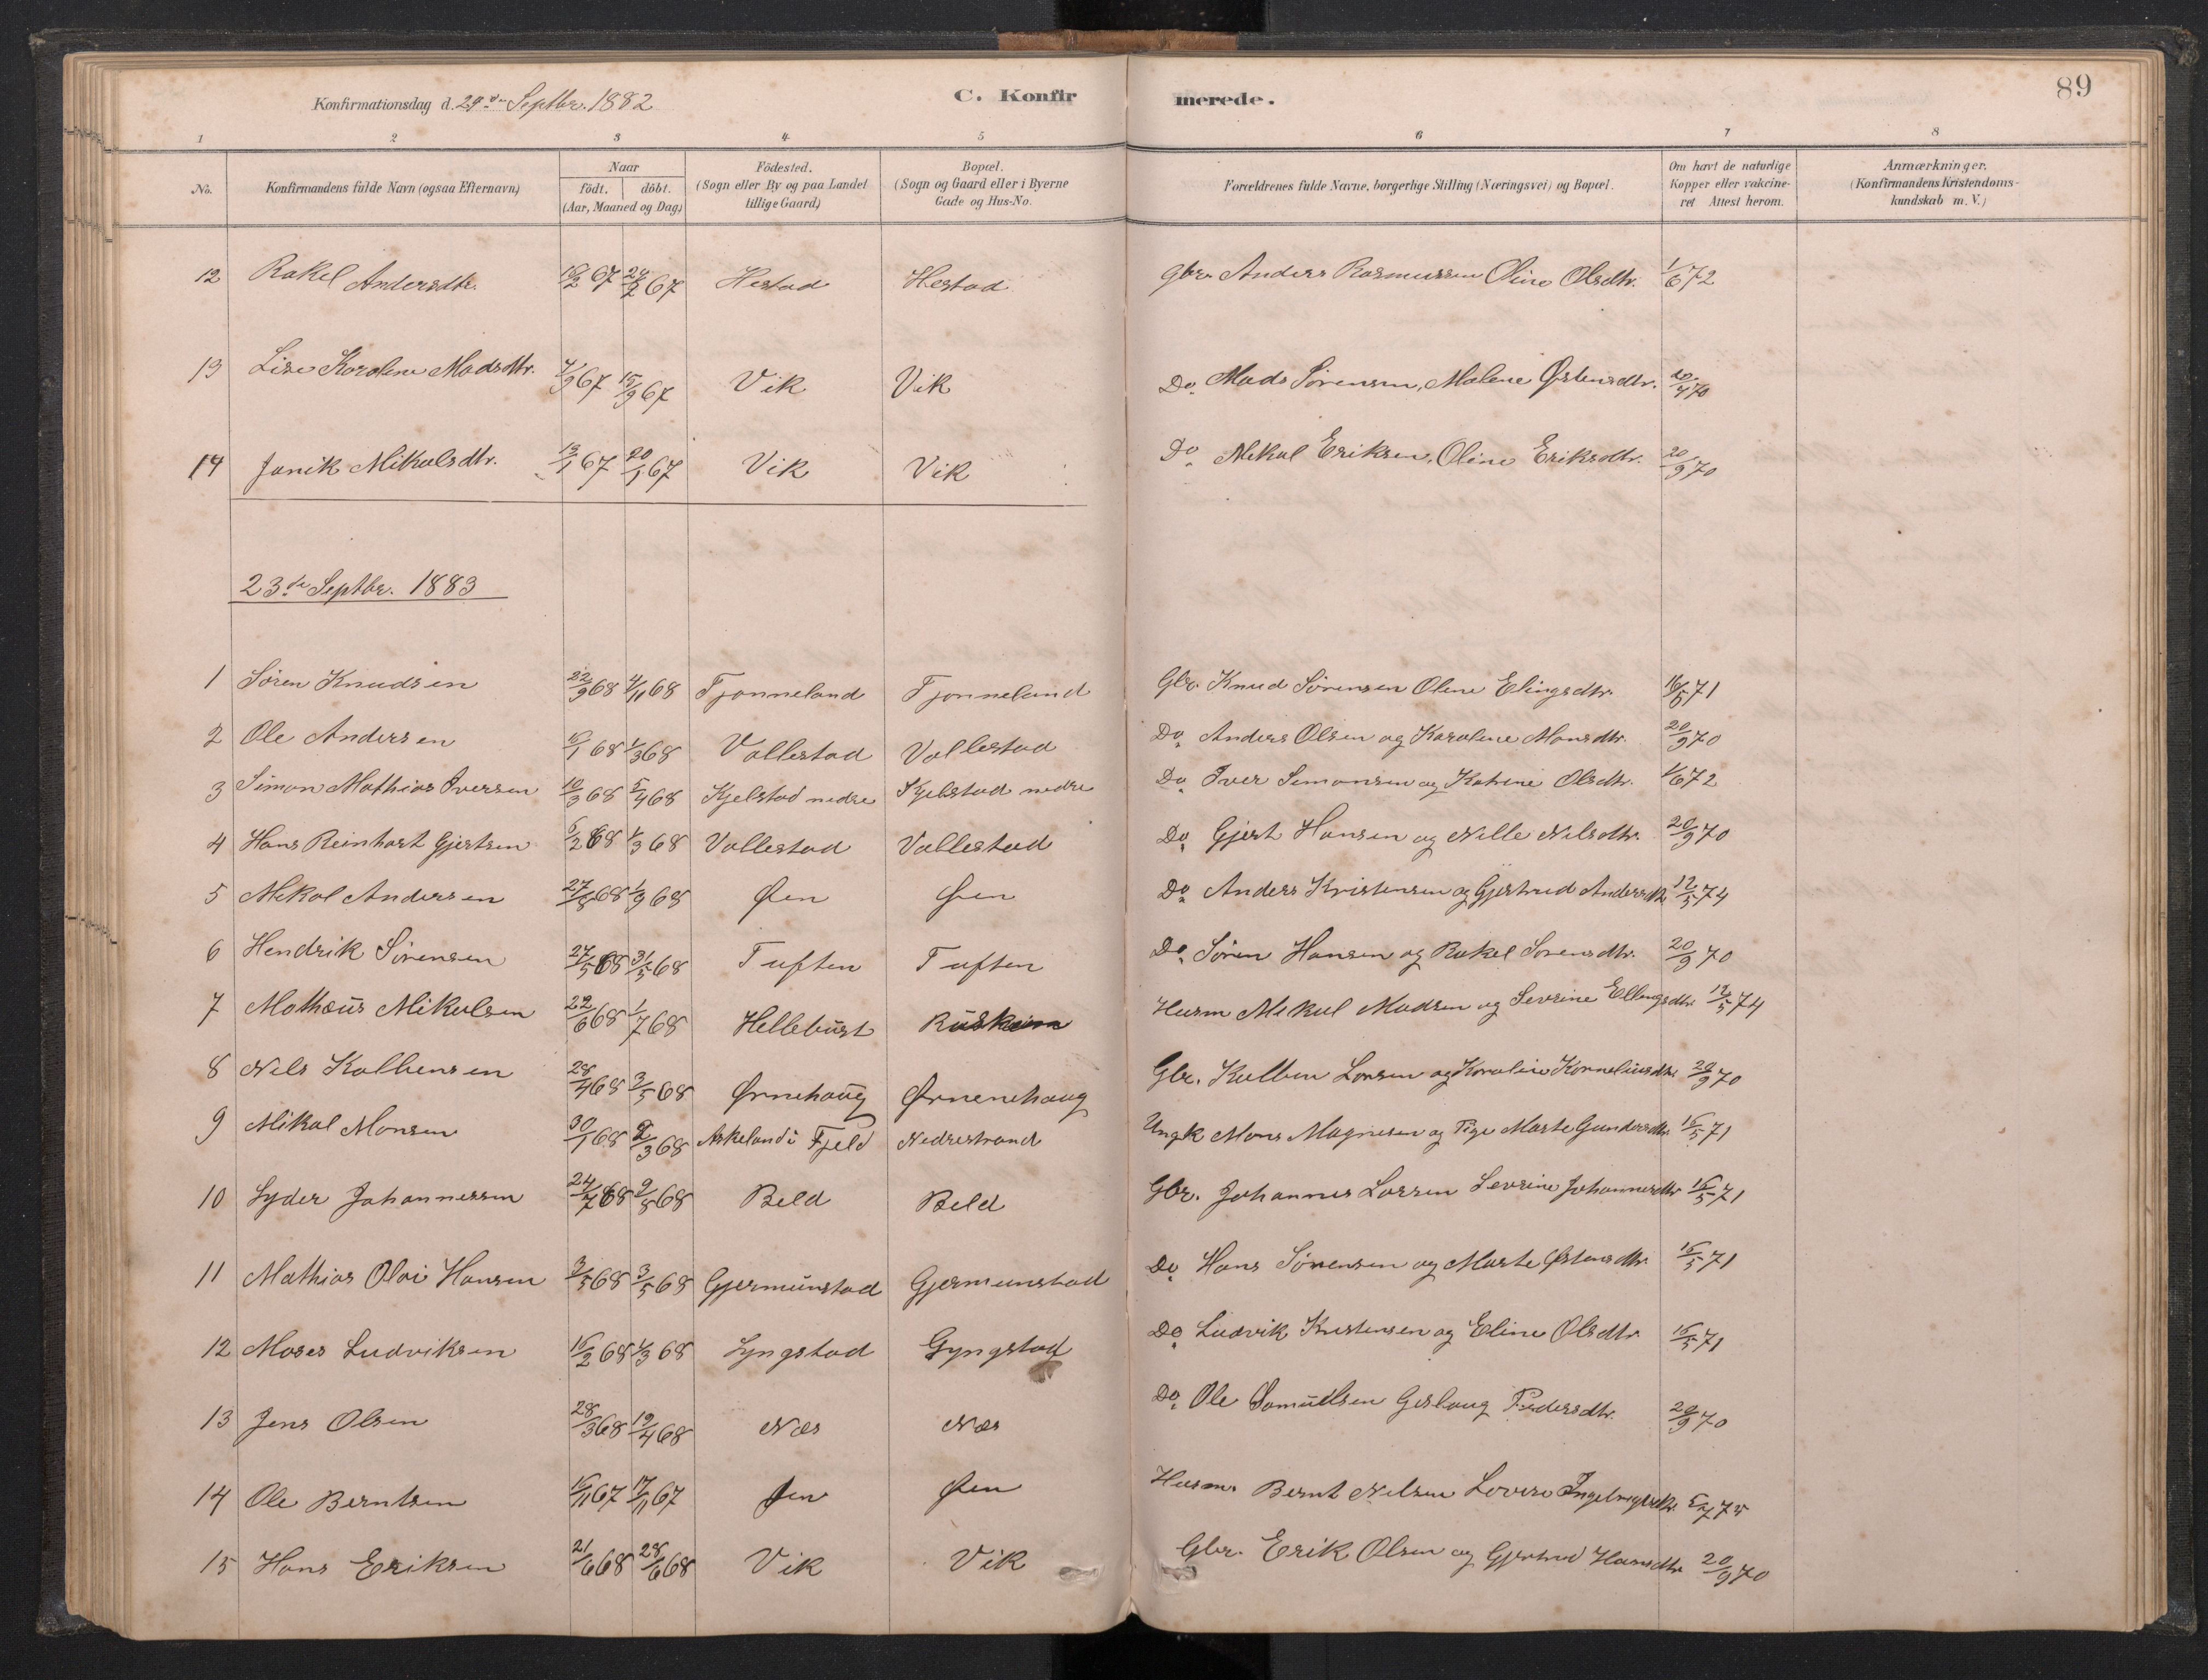 89
Konfirmationsdag d. 29de Septbr. 1882
C. Konfirmerede.
1 2 3 4 5 6 7 8
No. Konfirmandens fulde Navn (ogsaa Efternavn) Naar födt. döbt. (Aar, Maaned og Dag) Födested. (Sogn eller By og paa Landet tillige Gaard) Bopæl. (Sogn og Gaard eller i Byerne Gade og Hus-No. Forældrenes fulde Navne, borgerlige Stilling (Næringsvei) og Bopæl. Om havt de naturlige Kopper eller vakcineret Attest herom. Anmærkninger. (Konfirmandens Kristendomskundskab m. V.)
12 Rakel Andersdtr. 67 24/2 67 Hestad Hestad Gbr. Anders Rasmussen Oline Olsdtr. 1/6 72
13 Lise Karolene Madsdtr. 7/9 67 15/9 67 Vik Vik Do. Mads Sørensen, Malene Østensdtr. 70
14 Janik Mikalsdtr. 13/1 67 20/1 67 Vik Vik Do Mekal Eriksen, Oline Eriksdtr. 20/9 70
23de Septbr. 1883
1 Søren Knudsen 22/9 68 4/11 68 Tjønneland Tjonneland Gbr. Knud Sørensen Olene Elingsdtr. 16/5 71
2 Ole Andersen 68 1/3 68 Vallestad Vallestad Do. Anders Olsen og Karolene Monsdtr. 20/9 70
3 Simon Mathias Iversen 10/3 68 5/4 68 Kjelstad nedre Kjelstad nedre Do. Iver Simonsen og Katrine Olsdtr. 1/6 72
4 Hans Reinhart Gjertsen 5/2 68 1/3 68 Vallestad Vallestad Do. Gjert Hansen og Nille Nilsdtr. 20/9 70
5 Mekal Andersen 27/8 68 1/9 68 Øen Øen Do. Anders Kristensen og Gjertrud Andersdtr. 12/5 74
6 Hendrik Sørensen 27/5 68 31/5 68 Tuften Tuften Do. Søren Hansen og Rakel Sørensdtr. 20/9 70
7 Mathæus Mikalsen 22/6 68 1/7 68 Hellebust Husm Mekal Madsen og Sevrine Ellingsdtr. 12/5 74
8 Nils Kolbensen 28/4 68 3/5 68 Ørnehaug Ørnenehaug Gbr. Kolben Larsen og Karoline Korneliusdtr. 20/9 70
9 Mikal Monsen 30/1 68 68 Askeland i Fjeld Nedrestrand Ungk Mons Magnesen og Pige Marte Gundersdtr. 16/5 71
10 Lyder Johannessen 68 68 Beld Beld Gbr. Johannes Larsen Sevrine Johannesdtr 16/5 71
11 Mathias Olai Hansen 3/5 68 3/5 68 Gjermunstad Gjermunstad Do. Hans Sørensen og Marte Østensdtr. 16/5 71
12 Moses Ludviksen 16/2 68 1/3 68 Lyngstad Gyngstad Do. Ludvik Kristensen og Eline Olsdtr 16/5 71
13 Jens Olsen 28/3 68 19/4 68 Næs Næs Do. Ole Samuelsen Gjslaug Pedersdtr. 20/9 70
14 Ole Berntsen 16/11 67 17/11 67 Øen Øen Husm. Bernt Nelsen
15 Hans Eriksen 21/6 68 28/6 68 Vik Vik Gbr. Erik Olsen og Gjertrud Hansdtr 20/9 70